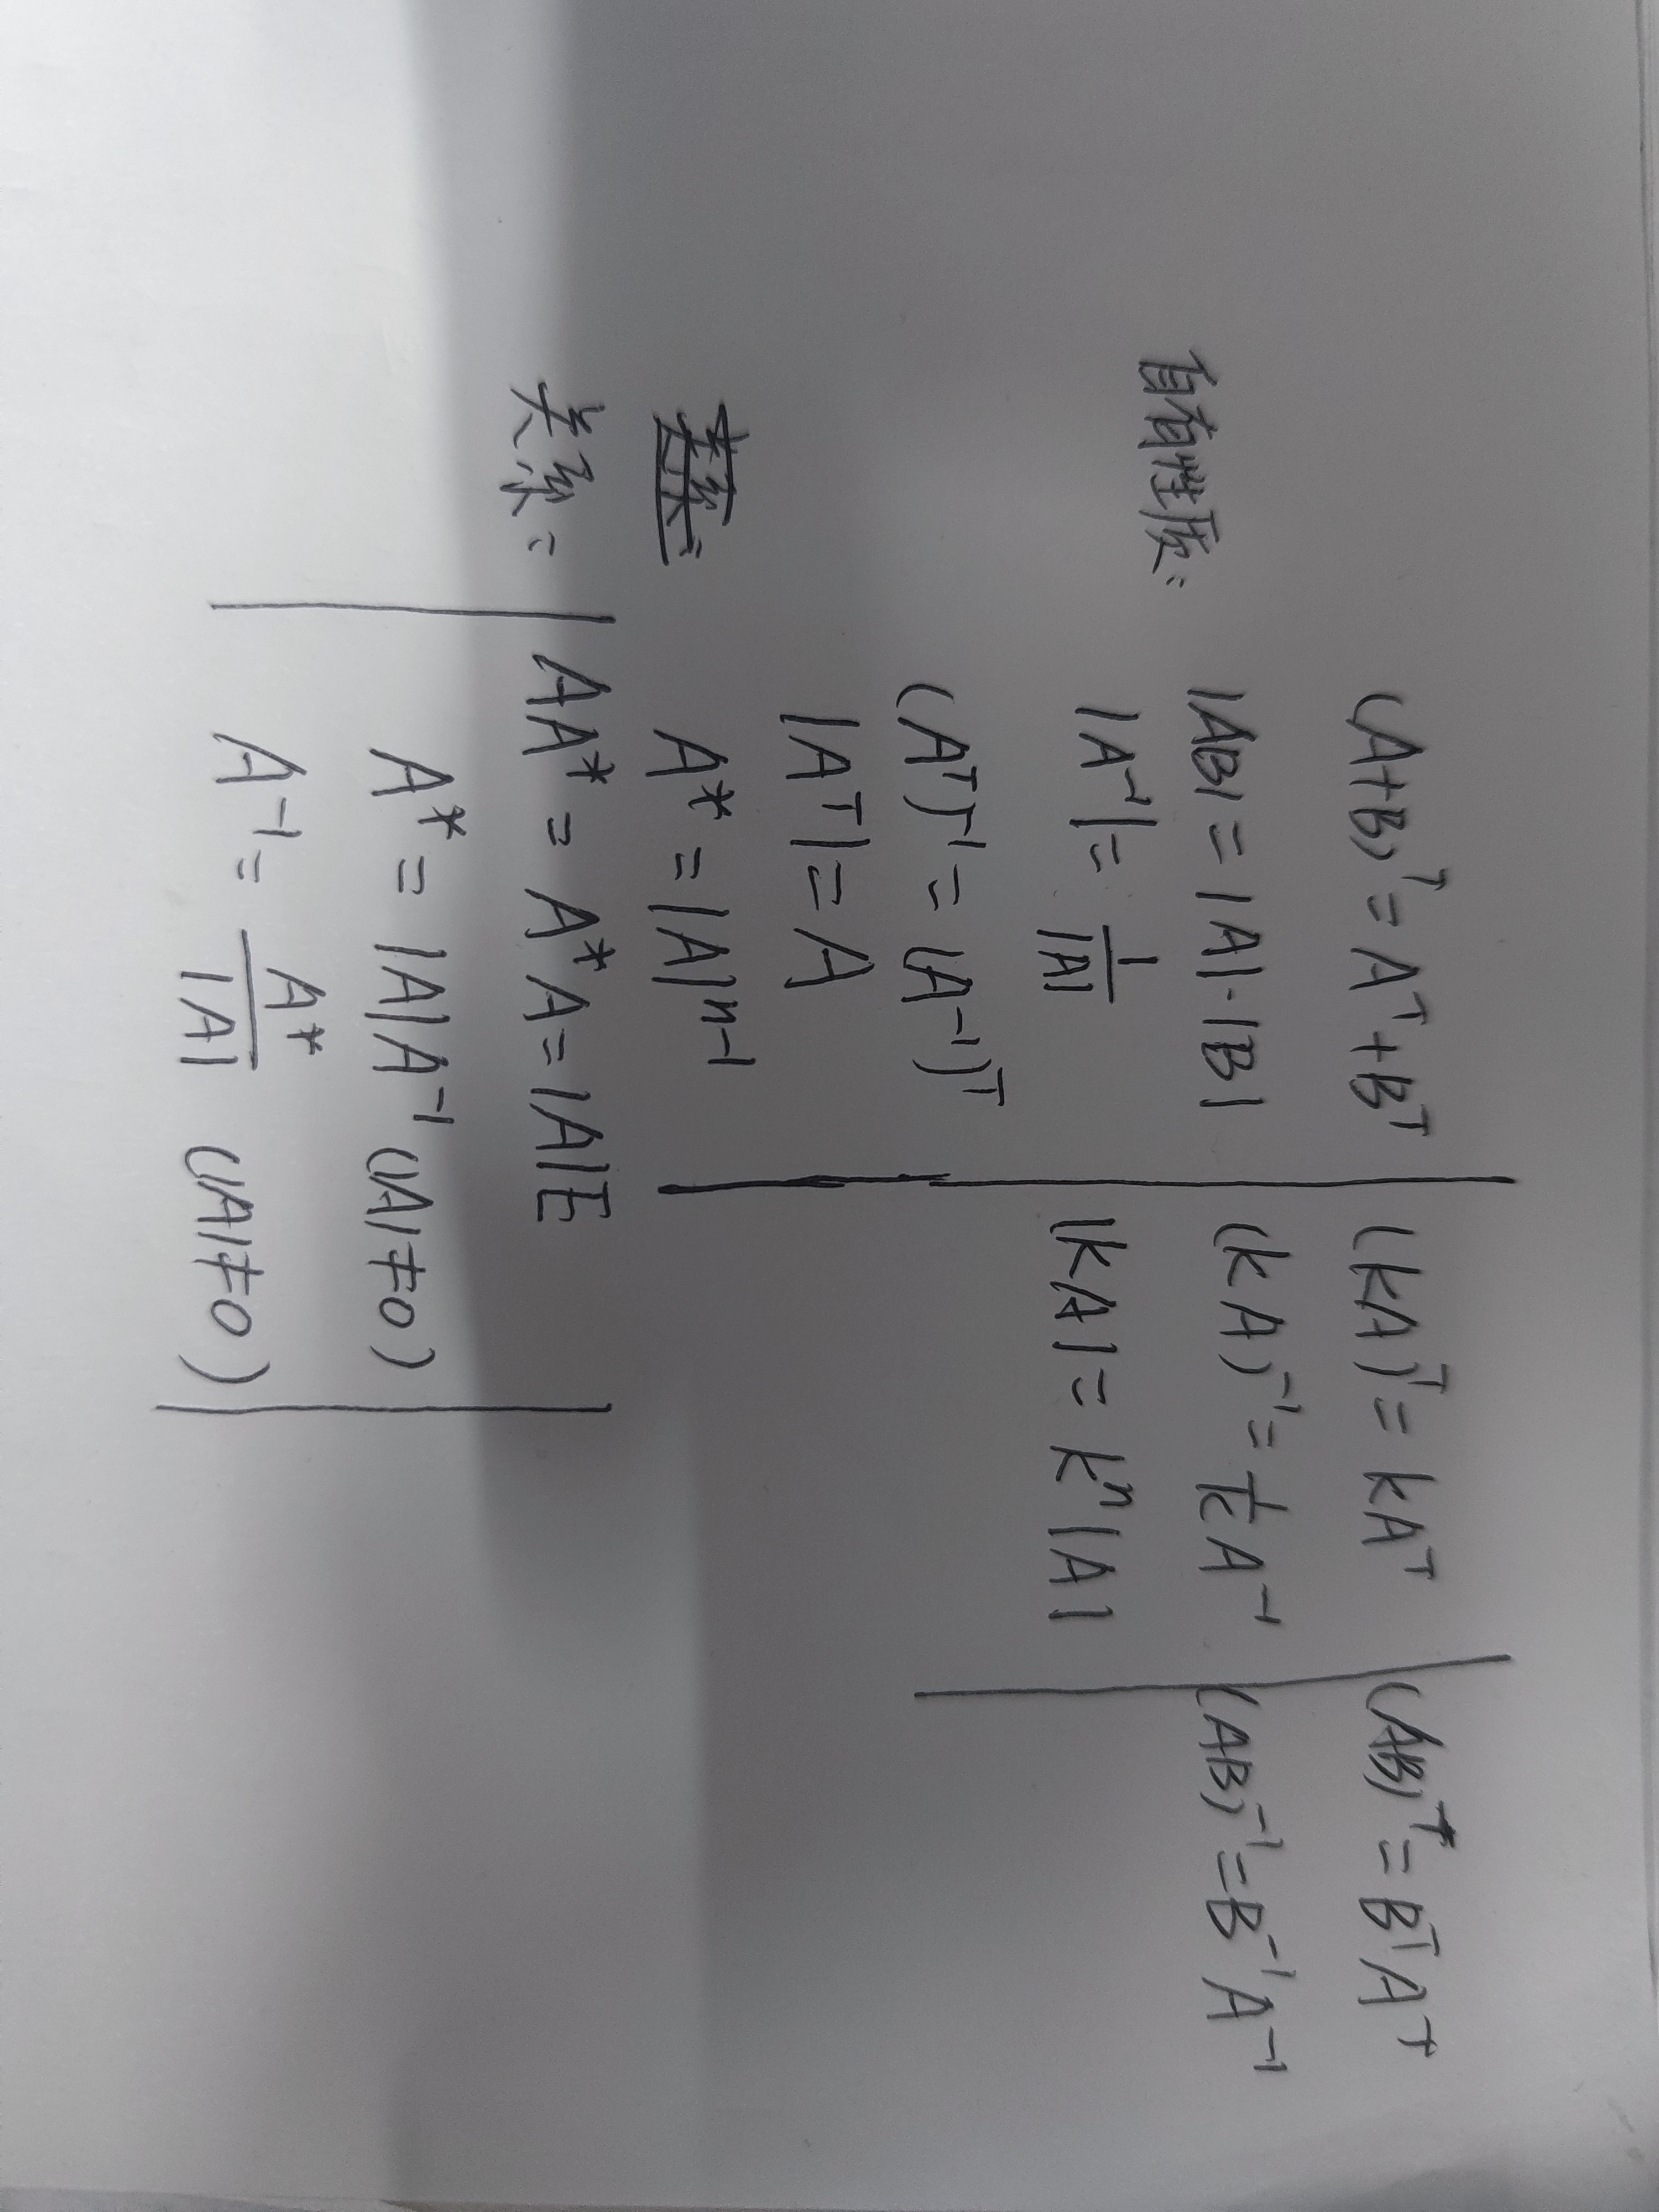 (A+B)ᵀ = Aᵀ + Bᵀ (kA)ᵀ = kAᵀ (AB)ᵀ = BᵀAᵀ
自有性质: |AB| = |A|·|B| (kA)⁻¹ = 1/k A⁻¹ (AB)⁻¹ = B⁻¹A⁻¹
|A⁻¹| = 1/|A| |kA| = kⁿ|A|
(Aᵀ)⁻¹ = (A⁻¹)ᵀ
|Aᵀ| = A
A* = |A|ⁿ⁻¹
关系: AA* = A*A = |A|E
A* = |A|A⁻¹ (|A|≠0)
A⁻¹ = A*/|A| (|A|≠0)